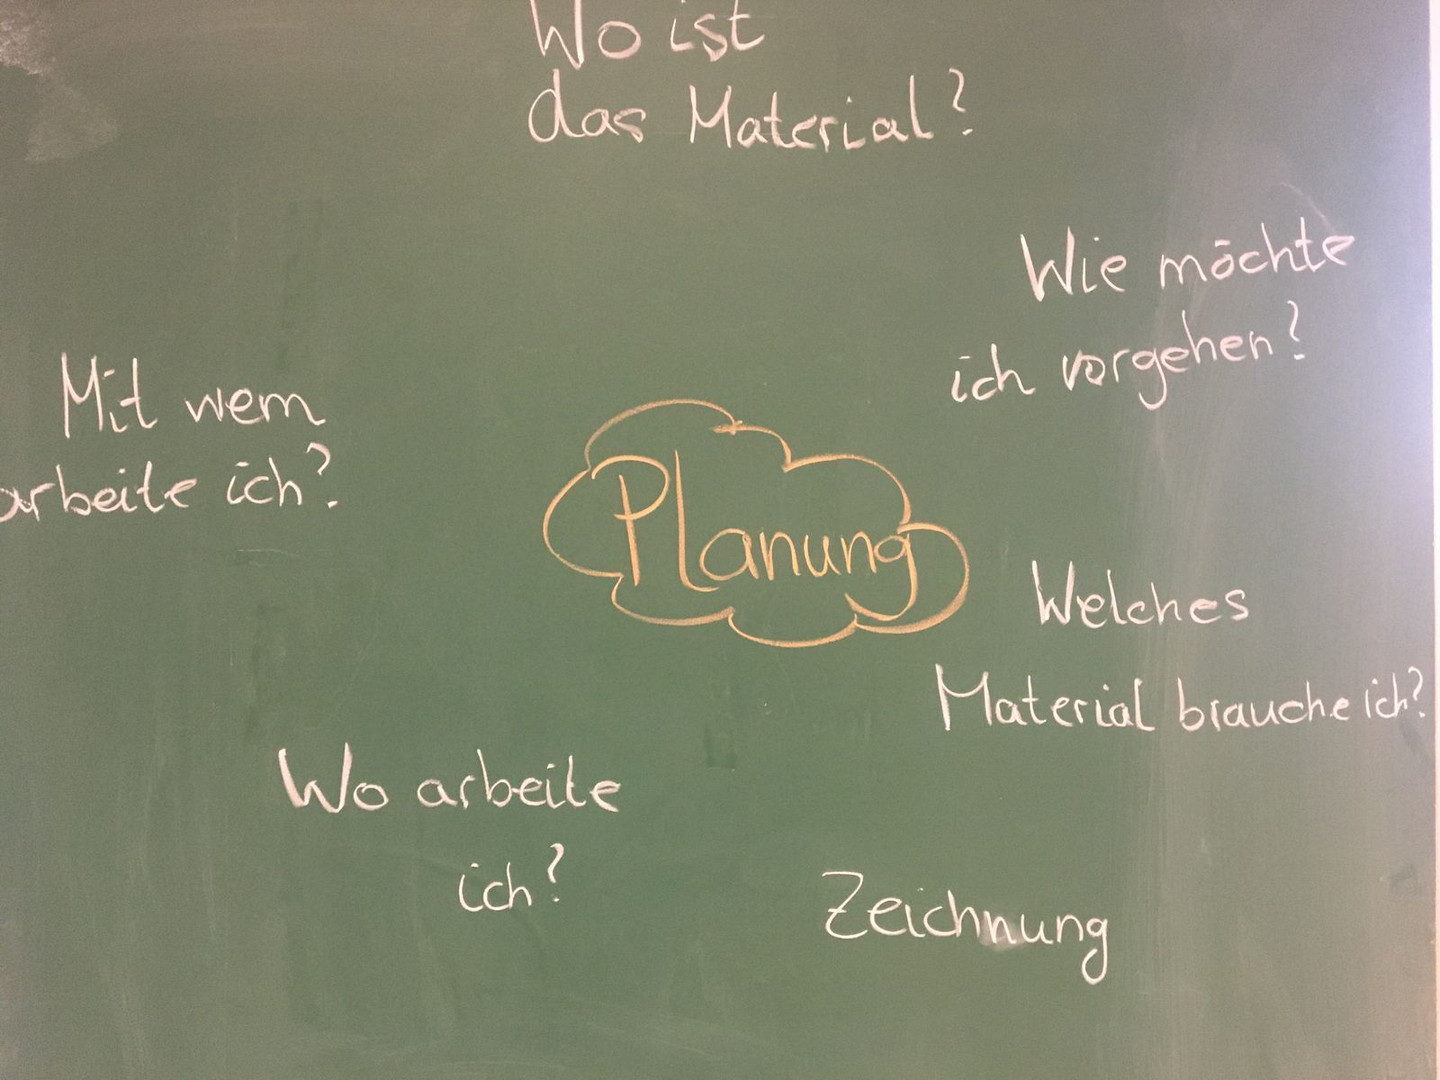 Wo ist
das Material?
Wie möchte
ich vorgehen?
Mit wem
arbeite ich?
Planung
Welches
Material brauche ich?
Wo arbeite
ich?
Zeichnung